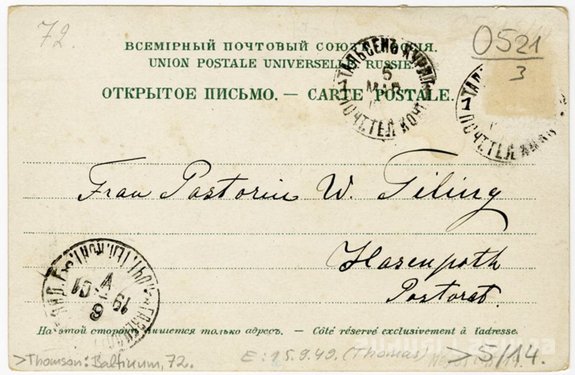 72.
ВСЕМІРНЫЙ ПОЧТОВЫЙ СОЮЗЪ РОССІЯ.
UNION POSTALE UNIVERSELLE RUSSIE
0521
3
ОТКРЫТОЕ ПИСЬМО. — CARTE POSTALE.
ТАЛЬСЕНЪ КУРЛ.
5
МАР
1 ПОЧТ.ТЕЛ. КОНТ.
ТАЛ
1 ПОЧТ.ТЕЛ.
Frau Pastorin W. Tiling
Hasenpoth
Pastorat.
На этой сторонѣ пишется только адресъ. — Côté réservé exclusivement à l'adresse.
>Thomson: Baltikum, 72.
E: 15.9.49. (Thomas)
>5/14.